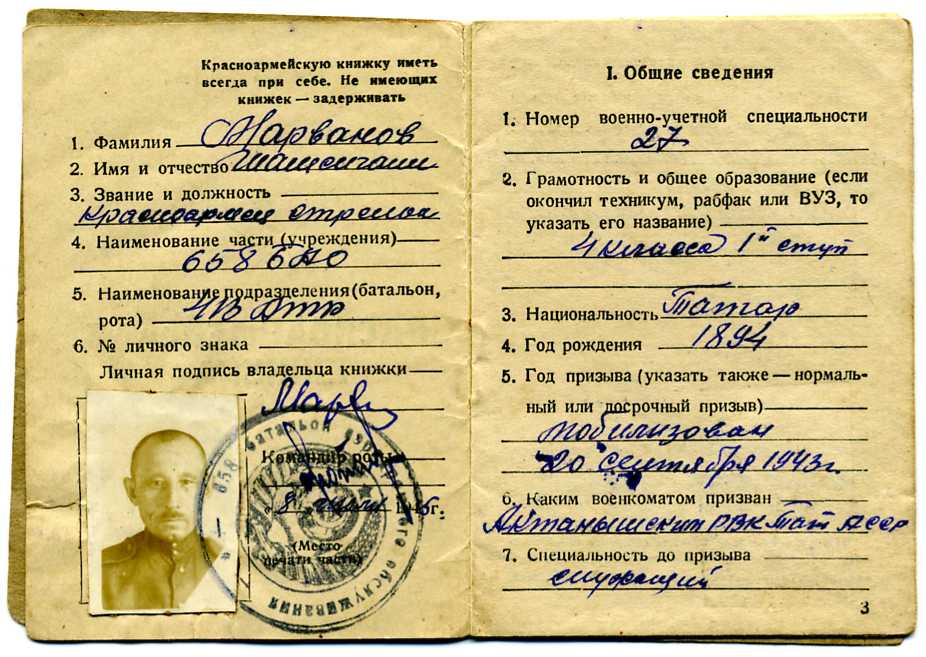 Красноармейскую книжку иметь
всегда при себе. Не имеющих
книжек — задерживать
1. Фамилия Марванов
2. Имя и отчество
3. Звание и должность
красноармеец стрелок
4. Наименование части (учреждения)
658 БАО
5. Наименование подразделения (батальон,
рота)
6. № личного знака
Личная подпись владельца книжки
Марв
Командир роты
8 194 г.
(Место
печати части)
658 батальон обслуживания
I. Общие сведения
1. Номер военно-учетной специальности
27
2. Грамотность и общее образование (если
окончил техникум, рабфак или ВУЗ, то
указать его название)
4 класса 1й ступ
3. Национальность Татар
4. Год рождения 1894
5. Год призыва (указать также — нормаль-
ный или досрочный призыв)
мобилизован
20 сентября 1943г.
6. Каким военкоматом призван
Актанышским РВК Тат АССР
7. Специальность до призыва
служащий
3